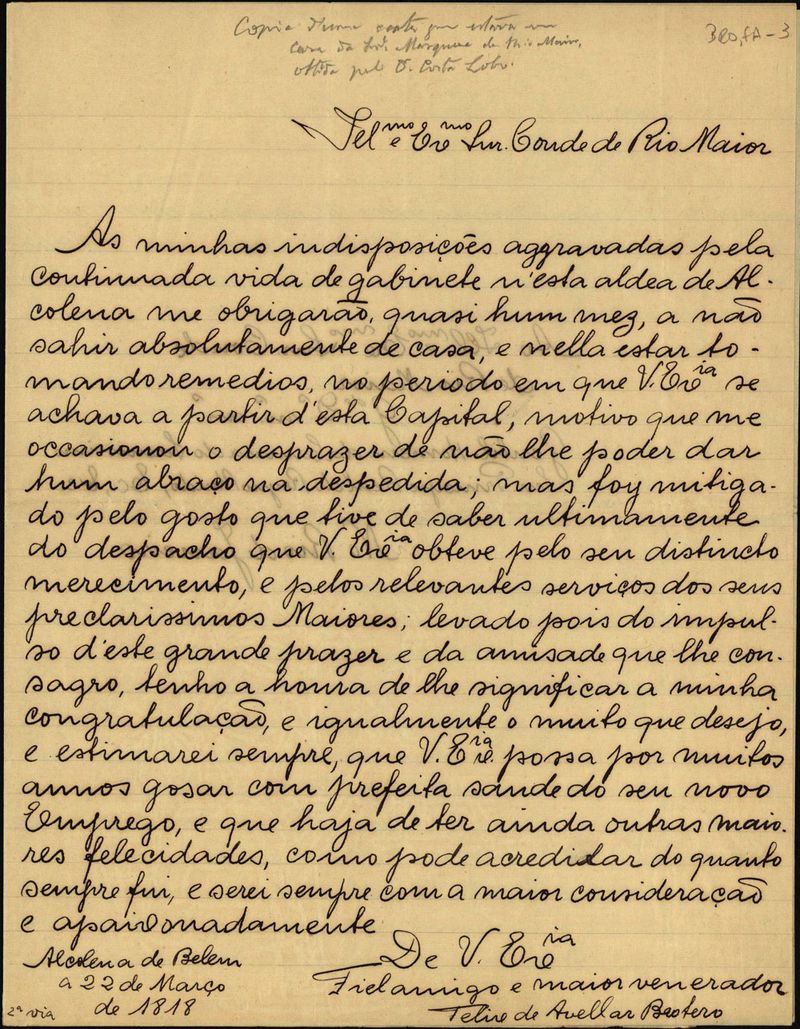 Copia d'uma carta que estava em
casa da Sr.ª Marqueza de Rio Maior,
obtida pelo D. Costa Lobo.
BRO,FA-3
Ill.mo e Ex.mo Snr. Conde de Rio Maior
As minhas indisposições aggravadas pela
continuada vida de gabinete n'esta aldea de Al-
colena me obrigarão, quasi hum mez, a não
sahir absolutamente de casa, e nella estar to-
mando remedios, no periodo em que V. Ex.ia se
achava a partir d'esta Capital, motivo que me
occasionou o desprazer de não lhe poder dar
hum abraço na despedida; mas foy mitiga-
do pelo gosto que tive de saber ultimamente
do despacho que V. Ex.ia obteve pelo seu distincto
merecimento, e pelos relevantes serviços dos seus
preclarissimos Maiores; levado pois do impul-
so d'este grande prazer e da amisade que lhe con-
sagro, tenho a honra de lhe significar a minha
congratulação, e igualmente o muito que desejo,
e estimarei sempre, que V. Ex.ia possa por muitos
annos gosar com prefeita saude do seu novo
Emprego, e que haja de ter ainda outras maio-
res felecidades, como pode acreditar do quanto
sempre fui, e serei sempre com a maior consideração
e apaixonadamente
De V. Ex.ia
Fiel amigo e maior venerador
Felix de Avellar Brotero
Alcolena de Belem
a 22 de Março
de 1818
2ª via